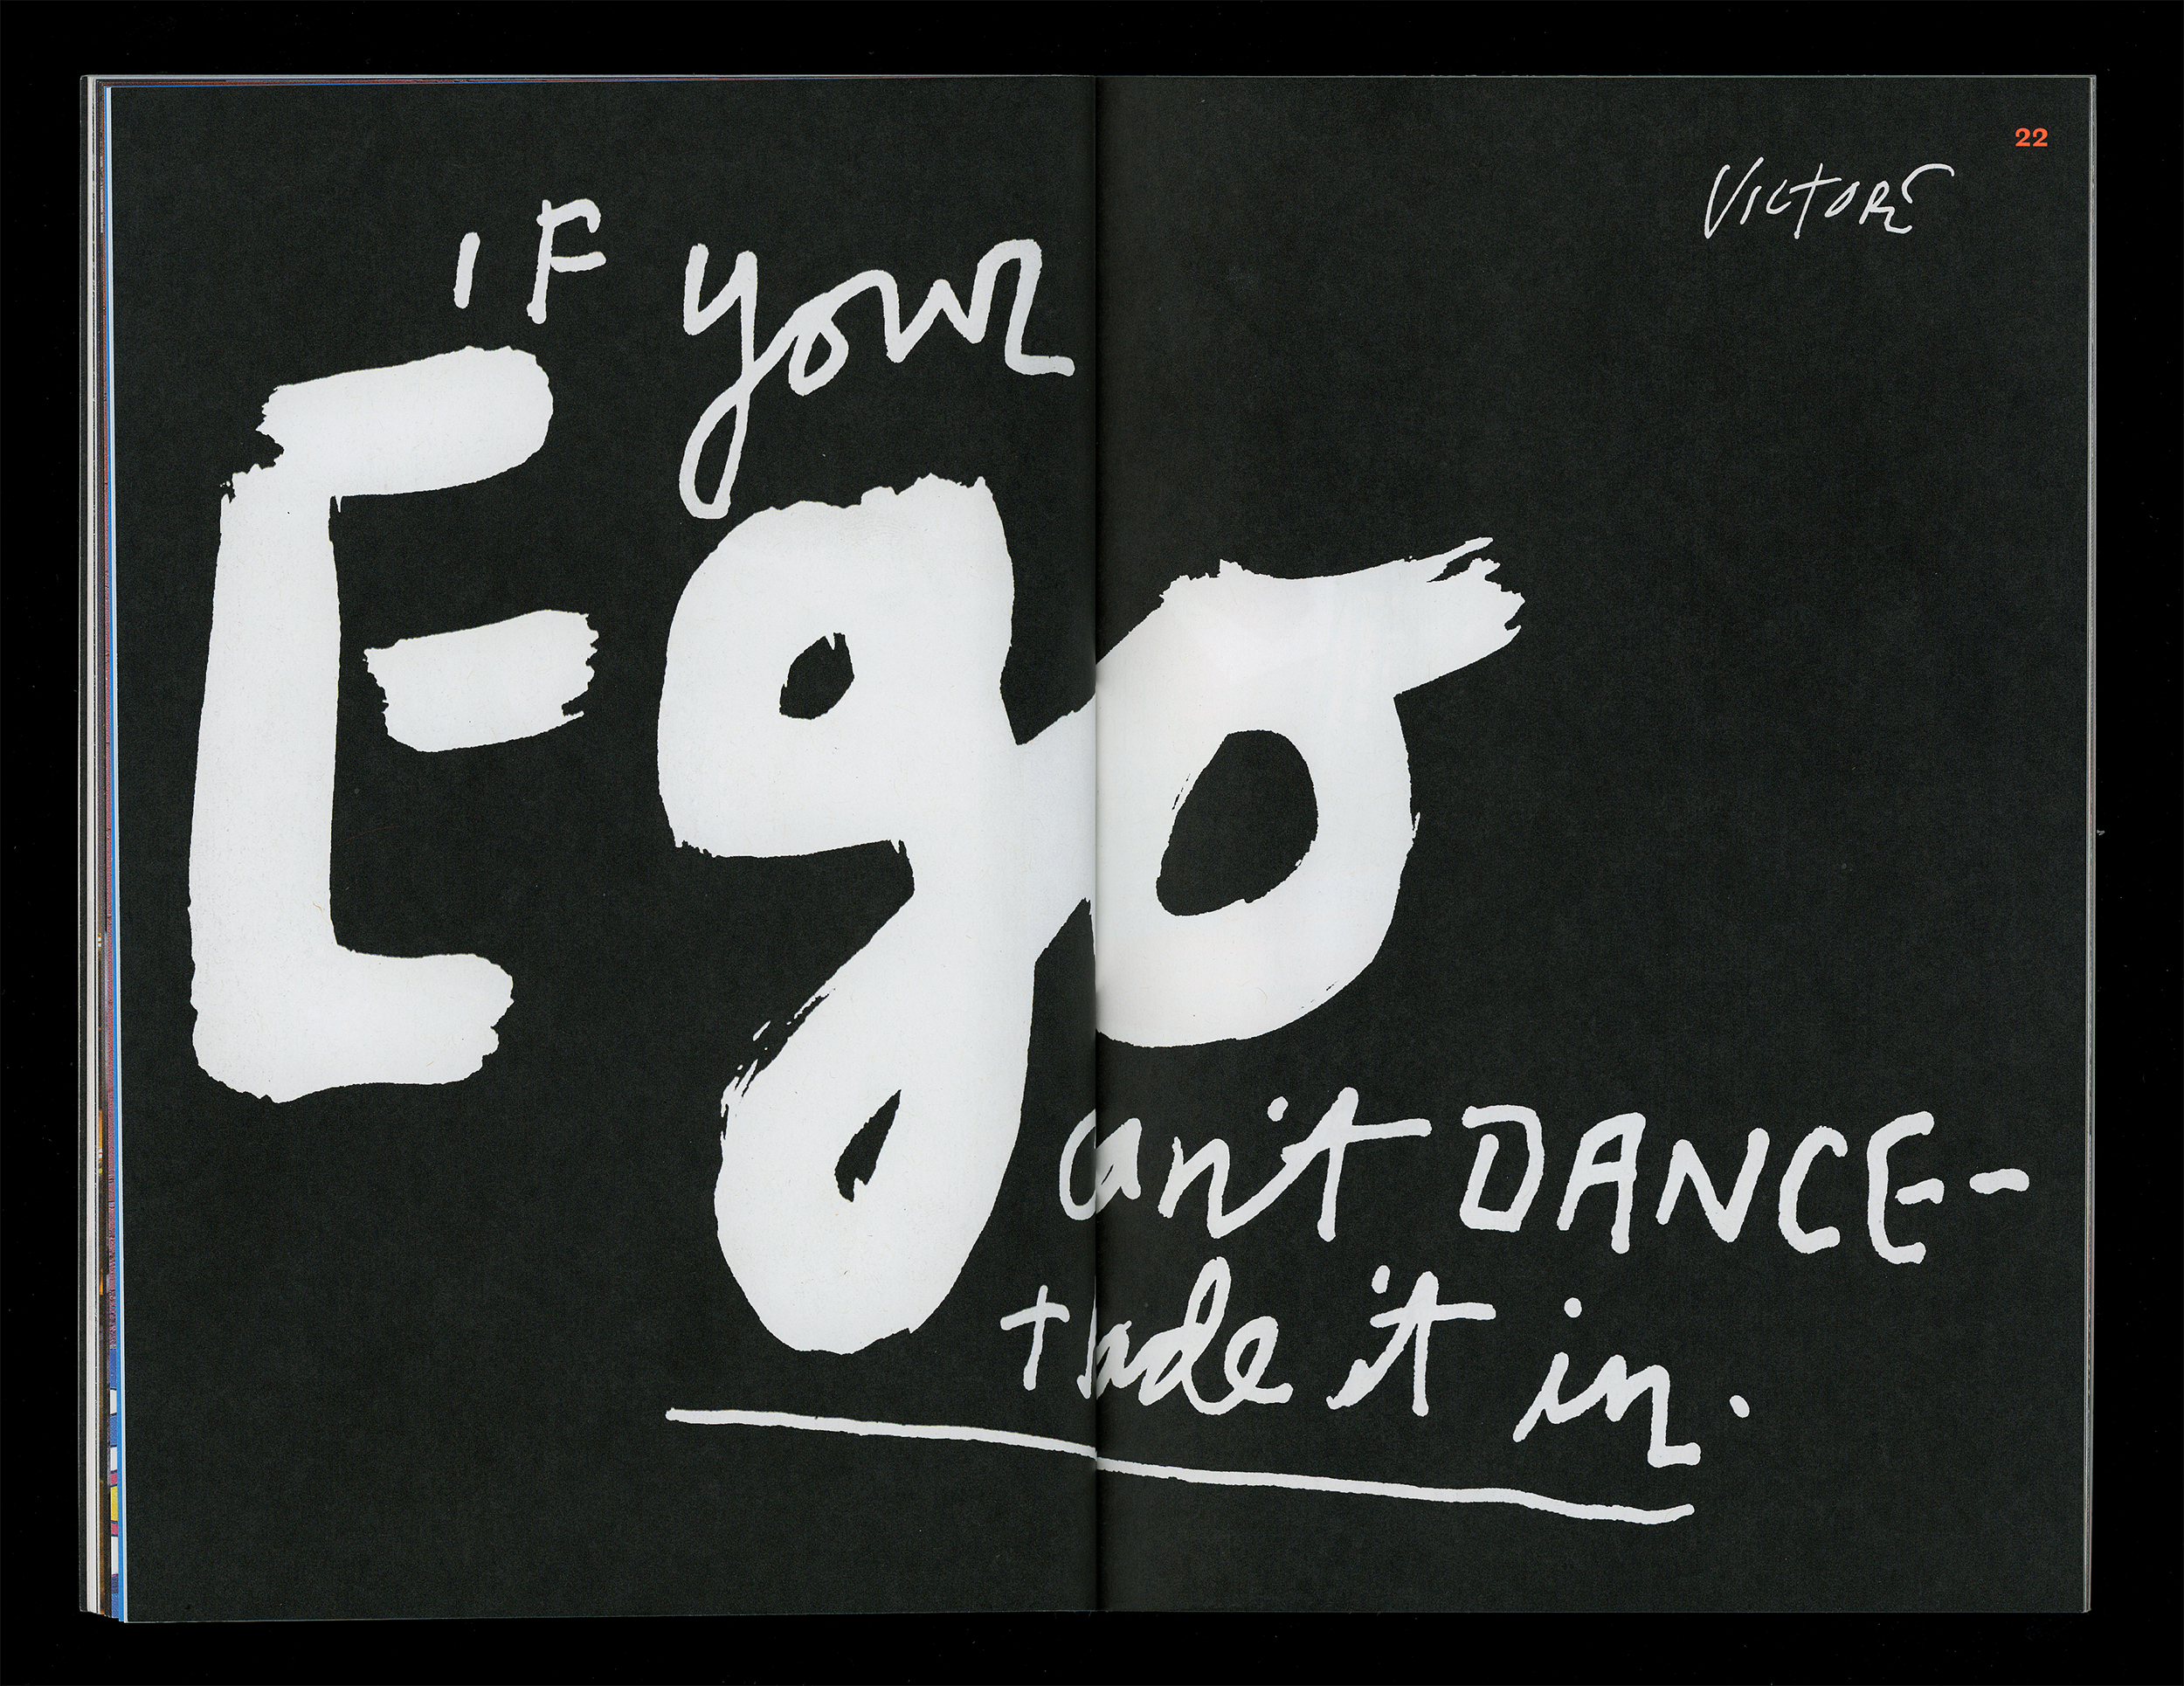 22
VICTORE
IF your
Ego
can't DANCE-
trade it in.